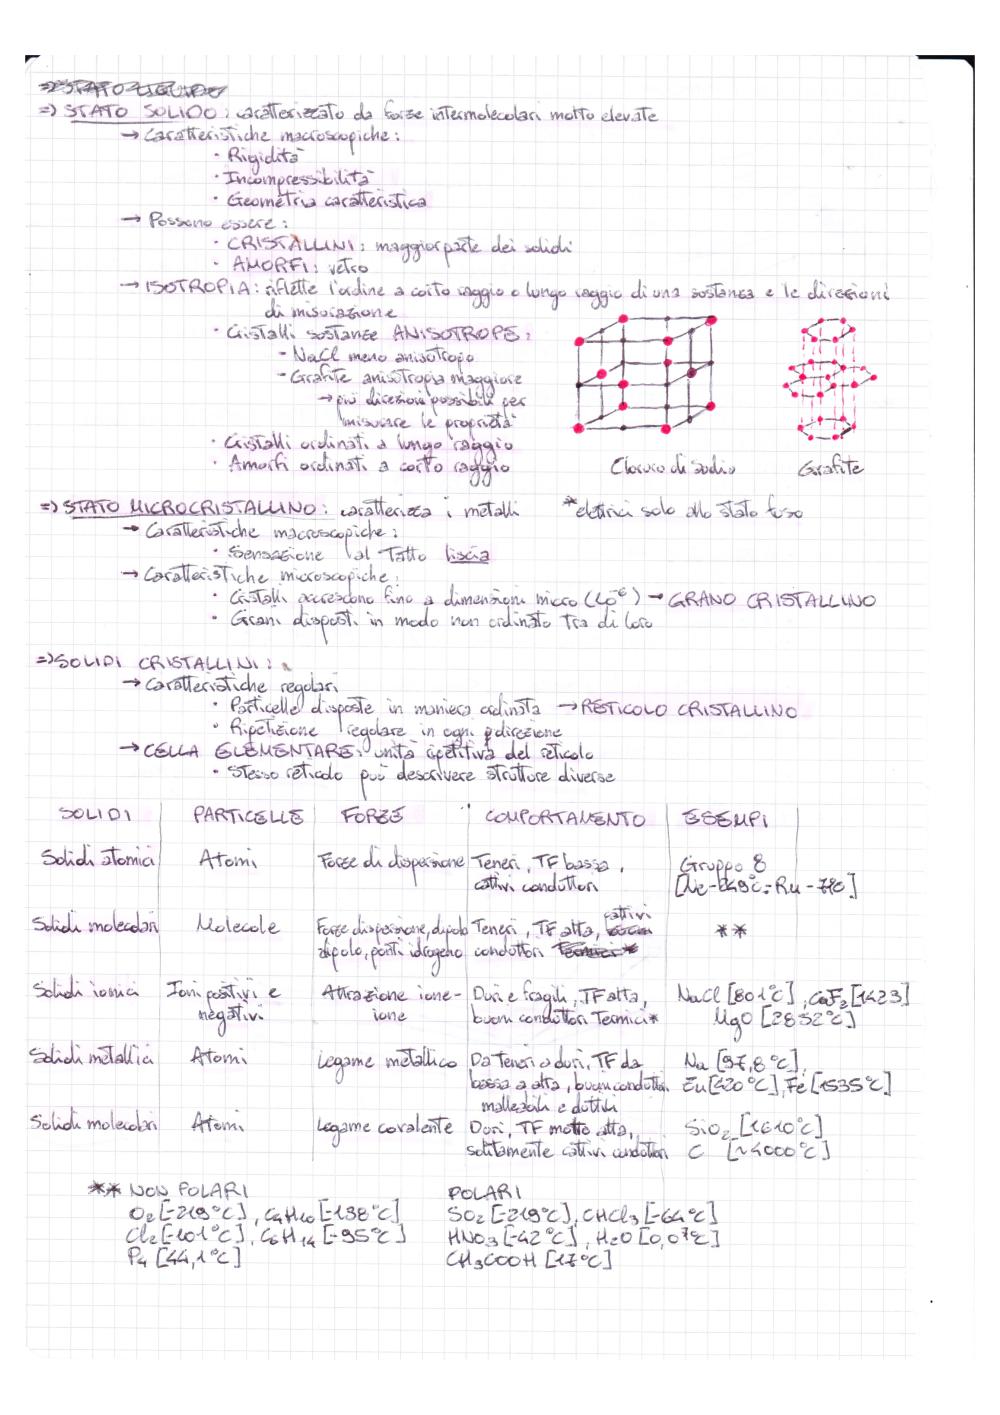 => STATO LIQUIDO
=> STATO SOLIDO: caratterizzato da forze intermolecolari molto elevate
→ Caratteristiche macroscopiche:
· Rigidità
· Incompressibilità
· Geometria caratteristica
→ Possono essere:
· CRISTALLINI: maggior parte dei solidi
· AMORFI: vetro
→ ISOTROPIA: riflette l'ordine a corto raggio o lungo raggio di una sostanza e le direzioni
di misurazione
· Cristalli sostanze ANISOTROPE:
- NaCl meno anisotropo
- Grafite anisotropia maggiore
→ più direzioni possibili per
misurare le proprietà
· Cristalli ordinati a lungo raggio
· Amorfi ordinati a corto raggio
Cloruro di sodio
Grafite
=> STATO MICROCRISTALLINO: caratterizza i metalli
*elettrici solo allo stato fuso
→ Caratteristiche macroscopiche:
· Sensazione al tatto liscia
→ Caratteristiche microscopiche:
· Cristalli accrescono fino a dimensioni micro → GRANO CRISTALLINO
· Grani disposti in modo non ordinato tra di loro
=> SOLIDI CRISTALLINI:
→ Caratteristiche regolari
· Particelle disposte in maniera ordinata → RETICOLO CRISTALLINO
· Ripetizione regolare in ogni direzione
→ CELLA ELEMENTARE: unità ripetitiva del reticolo
· Stesso reticolo può descrivere strutture diverse
SOLIDI PARTICELLE FORZE COMPORTAMENTO ESEMPI
Solidi atomici Atomi Forze di dispersione Teneri, TF bassa, Gruppo 8
cattivi conduttori
cattivi
Solidi molecolari Molecole Forze dispersione, dipolo Teneri, TF alta, **
dipolo, ponti idrogeno conduttori
Solidi ionici Ioni positivi e Attrazione ione- Duri e fragili, TF alta, NaCl [801°C], CaF2 [1423]
negativi ione buoni conduttori termici* MgO [2852°C]
Solidi metallici Atomi Legame metallico Da teneri a duri, TF da Na [97,8°C],
bassa a alta, buoni condutto. Fe [1535°C]
malleabili e duttili
Solidi molecolari Atomi Legame covalente Duri, TF molto alta, SiO2 [1610°C]
solitamente cattivi conduttori C [~4000°C]
** NON POLARI POLARI
O2 [-219°C], C4H10 [-138°C] SO2 [-219°C], CHCl3 [-64°C]
Cl2 [-101°C], C6H14 [-95°C] HNO3 [-42°C], H2O [0,07°C]
P4 [44,1°C] CH3COOH [17°C]